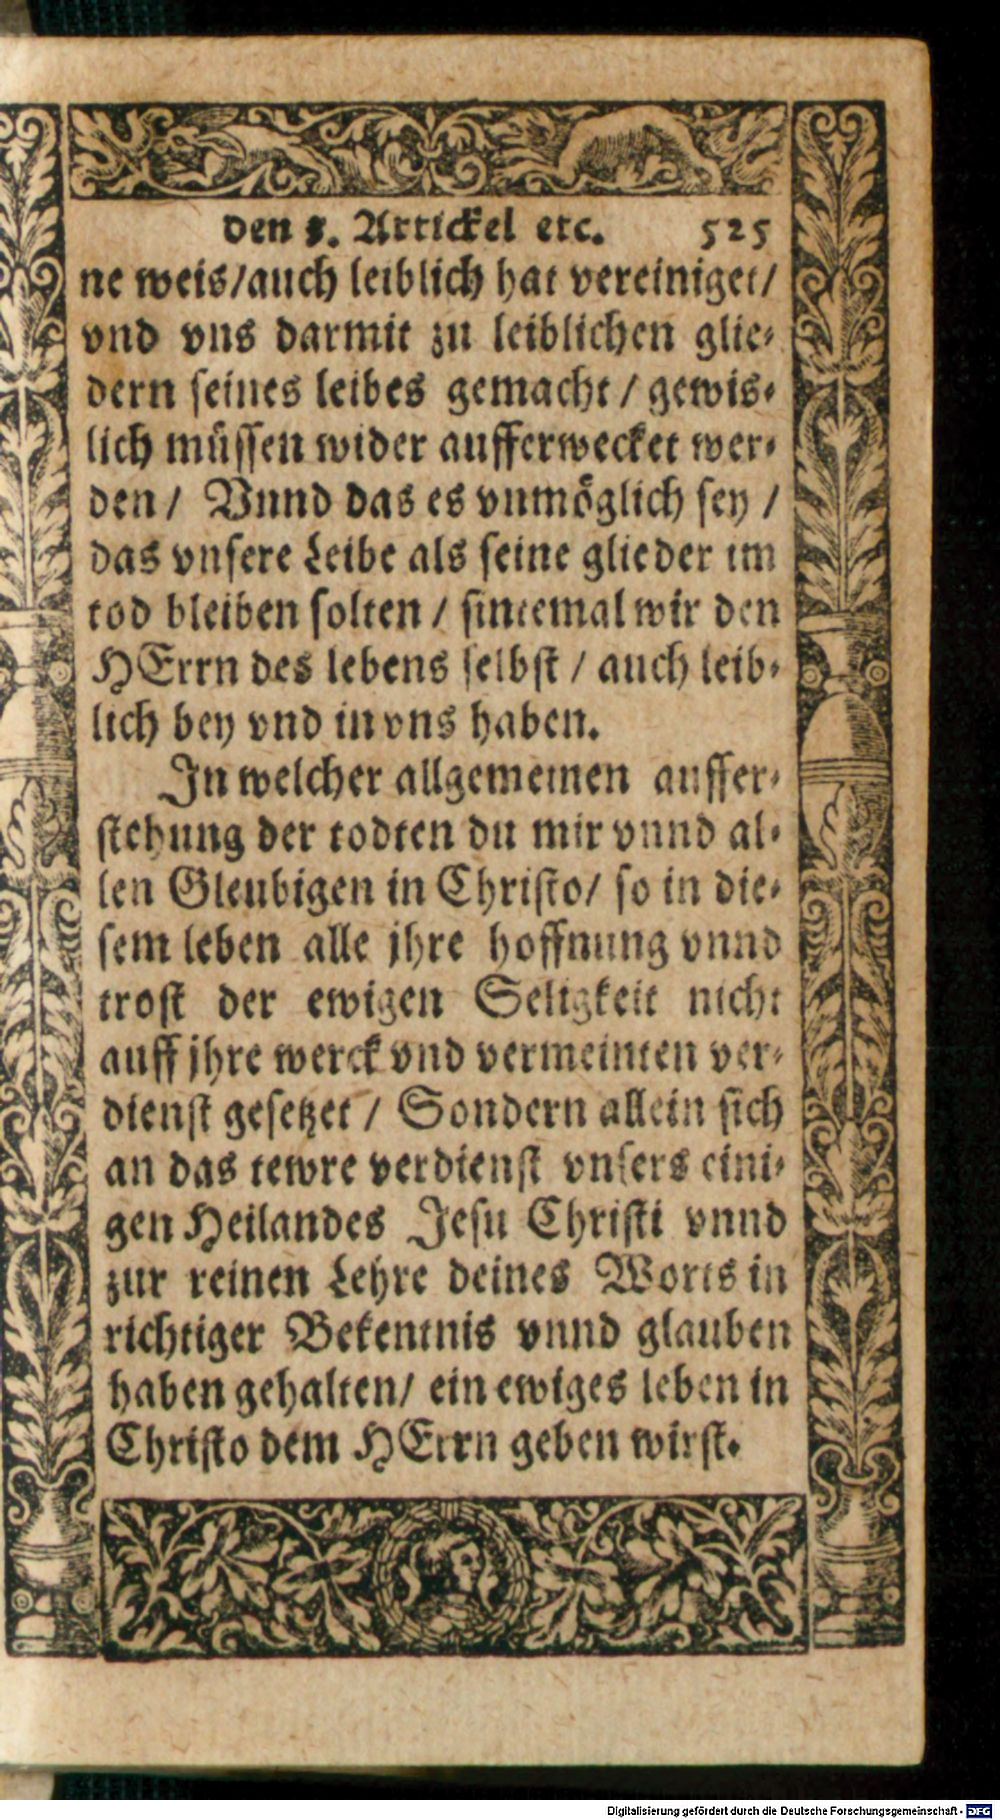 den 8. Artickel etc. 525
ne weis/auch leiblich hat vereiniget/
vnd vns darmit zu leiblichen glie-
dern seines leibes gemacht / gewis-
lich müssen wider aufferwecket wer-
den / Vnnd das es vnmöglich sey /
das vnsere Leibe als seine glieder im
tod bleiben solten / sintemal wir den
HErrn des lebens selbst / auch leib-
lich bey vnd in vns haben.
In welcher allgemeinen auffer-
stehung der todten du mir vnnd al-
len Gleubigen in Christo/ so in die-
sem leben alle jhre hoffnung vnnd
trost der ewigen Seligkeit nicht
auff jhre werck vnd vermeinten ver-
dienst gesetzet / Sondern allein sich
an das tewre verdienst vnsers eini-
gen Heilandes Jesu Christi vnnd
zur reinen Lehre deines Worts in
richtiger Bekentnis vnnd glauben
haben gehalten/ ein ewiges leben in
Christo dem HErrn geben wirst.
Digitalisierung gefördert durch die Deutsche Forschungsgemeinschaft - DFG